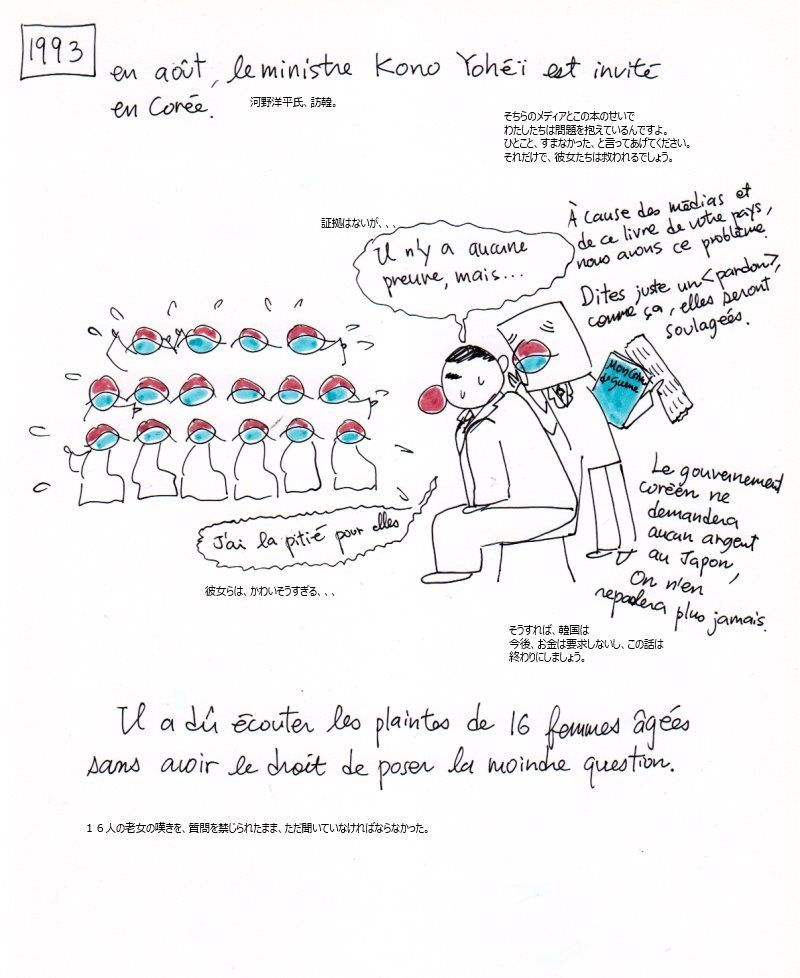 1993
en août, le ministre Kono Yohéï est invité
en Corée.
河野洋平氏、訪韓。
そちらのメディアとこの本のせいで
わたしたちは問題を抱えているんですよ。
ひとこと、すまなかった、と言ってあげてください。
それだけで、彼女たちは救われるでしょう。
証拠はないが、、、
Il n'y a aucune
preuve, mais...
À cause des médias et
de ce livre de votre pays,
nous avons ce problème.
Dites juste un <pardon>,
comme ça, elles seront
soulagées.
Mon Crime
de guerre
J'ai la pitié pour elles
彼女らは、かわいそうすぎる、、、
Le gouvernement
coréen ne
demandera
aucun argent
au Japon,
On n'en
reparlera plus jamais.
そうすれば、韓国は
今後、お金は要求しないし、この話は
終わりにしましょう。
Il a dû écouter les plaintes de 16 femmes âgées
sans avoir le droit de poser la moindre question.
１６人の老女の嘆きを、質問を禁じられたまま、ただ聞いていなければならなかった。